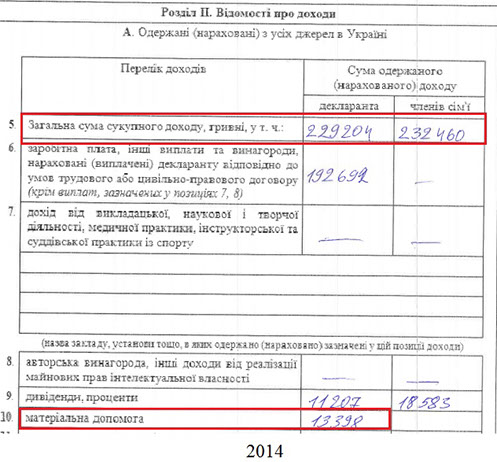 Розділ II. Відомості про доходи
А. Одержані (нараховані) з усіх джерел в Україні
Перелік доходів
Сума одержаного
(нарахованого) доходу
декларанта
членів сім'ї
5. Загальна сума сукупного доходу, гривні, у т. ч.: 229204 232460
6. заробітна плата, інші виплати та винагороди,
нараховані (виплачені) декларанту відповідно до
умов трудового або цивільно-правового договору
(крім виплат, зазначених у позиціях 7, 8) 192692 —
7. дохід від викладацької, наукової і творчої
діяльності, медичної практики, інструкторської та
суддівської практики із спорту — —
(назва закладу, установи тощо, в яких одержано (нараховано) зазначені у цій позиції доходи)
8. авторська винагорода, інші доходи від реалізації
майнових прав інтелектуальної власності — —
9. дивіденди, проценти 11207 18583
10. матеріальна допомога 13398
2014